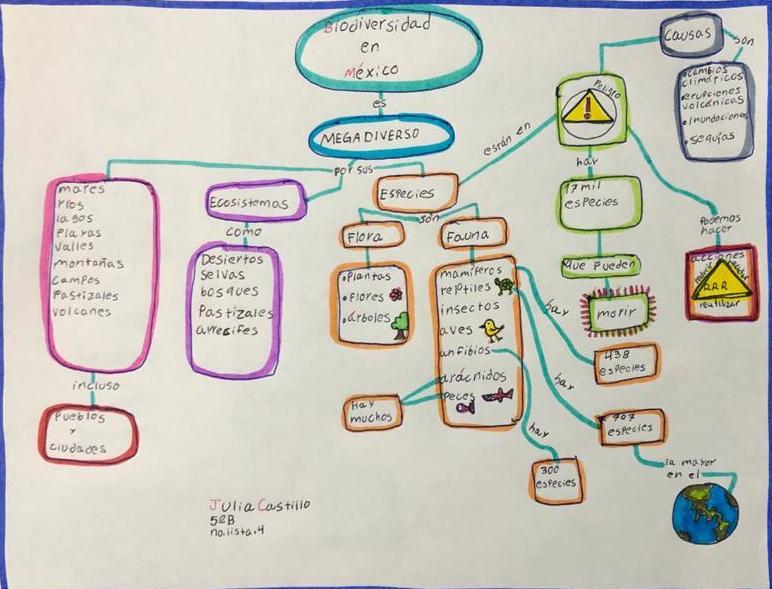 Biodiversidad
en
México
es
MEGADIVERSO
por sus
mares
rios
lagos
Valles
montañas
campos
Pastizales
volcanes
incluso
Pueblos
y
ciudades
Ecosistemas
como
Desiertos
selvas
bosques
Pastizales
arrecifes
Especies
son
Flora
•Plantas
•Flores
•árboles
Fauna
mamíferos
reptiles
insectos
aves
anfibios
arácnidos
peces
Hay
muchos
hay
438
especies
hay
707
especies
la mayor
en el
hay
300
especies
están en
Peligro
hay
17 mil
especies
que pueden
morir
Causas
son
•cambios
climáticos
erupciones
volcánicas
•Inundaciones
•sequías
Podemos
hacer
acciones
RRR
reutilizar
Julia Castillo
5ºB
no.lista.4